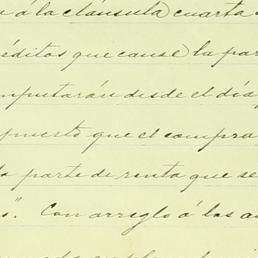 á la cláusula cuarta
réditos que cause la par
mputarán desde el día
puesto que el compra
la parte de renta que se
s". Con arreglo á las a